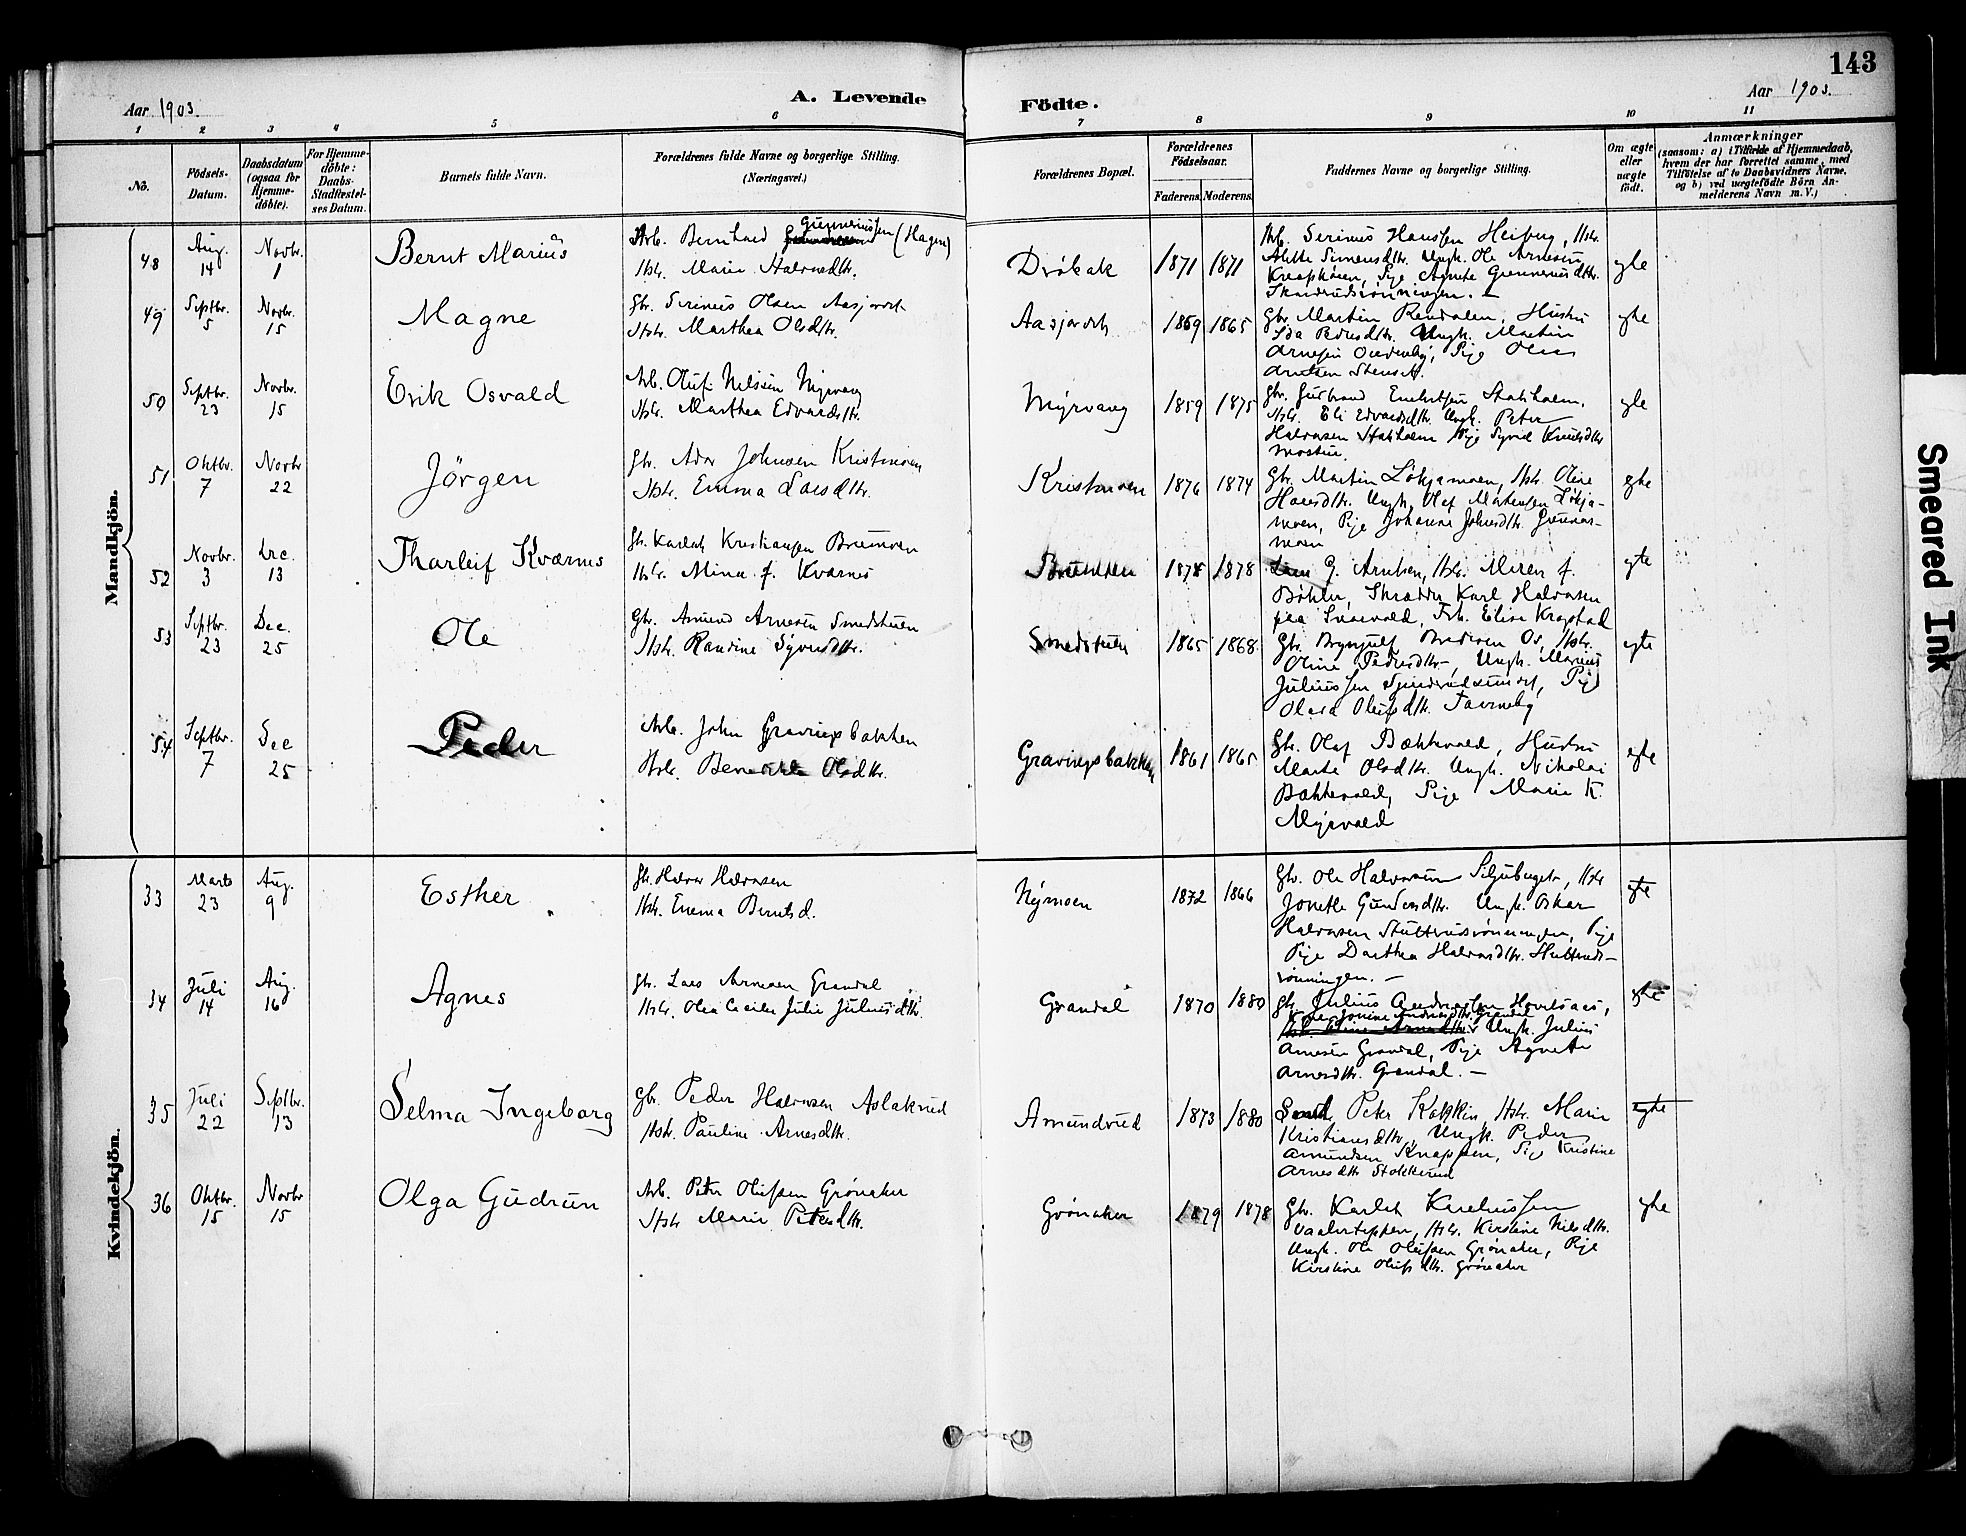 143
Aar 1903.
A. Levende
Födte.
Aar 1903.
1 2 3 4 5 6 7 8 9 10 11
No.
Födsels-
Datum.
Daabsdatum
(ogsaa for
Hjemme-
döbte).
For Hjemme-
döbte:
Daabs-
Stadfæstel-
ses Datum.
Barnets fulde Navn.
Forældrenes fulde Navne og borgerlige Stilling.
(Næringsvei.)
Forældrenes Bopæl.
Forældrenes
Födselsaar.
Faderens. Moderens.
Faddernes Navne og borgerlige Stilling.
Om ægte
eller
uægte
födt.
Anmærkninger
(saasom: a) i Tilfælde af Hjemmedaab,
hvem der har forrettet samme, med
Tilföielse af to Daabsvidners Navne,
og b) ved uægtefödte Börn An-
melderens Navn m. V.)
Mandkjön.
48
Aug.
14
Novbr.
1
Bernt Marius
Arb. Bernhard Gunneriussen (Hagen)
Hstr. Marie Halvorsdtr.
Dröbak
1871 1871
Arb. Serinus Hanssen Heiberg, Hstr.
Simensdtr. Ungk. Ole Arnesen
Pige Agnete Gunneriusdtr.
egte
49
Septbr.
5
Novbr.
15
Magne
Gbr. Serinus Olsen Aasjordet
Hstr. Marthea Olsdtr.
Aasjordet
1869 1865
Gbr. Martin Rendalen, Hustru
Ida Pedersdtr. Ungk. Martin
Arnesen Pige
egte
50
Septbr.
23
Novbr.
15
Erik Osvald
Arb. Oluf Nilssen Myrvang
Hstr. Marthea Edvardsdtr.
Myrvang
1859 1875
Gbr. Gulbrand
Hstr. Eli Edvardsdtr. Ungk. Peter
Halvorsen Pige Knutsdtr.
egte
51
Oktbr.
7
Novbr
22
Jörgen
Gbr. Johnsen Kristmoen
Hstr. Emma Larsdtr.
Kristmoen
1876 1874
Gbr. Martin Lökjamoen, Hstr. Oline
Ungk. Olaf Martinsen Lökja-
moen, Pige Johanne Johnsdtr. Gunnars-
moen
egte
52
Novbr.
3
Dec.
13
Tharleif Kværnes
Gbr. Karluf Kristiansen Brumoen
Hstr. Mina f. Kværnes
Brumoen
1878 1878
G. Arntsen, Hstr. Maren f.
Böhler, Skrædder Karl Halvorsen
paa Snarvold, Frk. Elise Kragstad
egte
53
Septbr.
23
Dec.
25
Ole
Gbr. Amund Arnesen Smedstuen
Hstr. Randine Syversdtr.
Smedstuen
1865 1868
Gbr. Brynjulf Os, Hstr.
Oline Pedersdtr., Ungk. Marius
Juliussen Pige
Olufsdtr.
egte
54
Septbr.
7
Dec
25
Peder
Arb. John Gravingsbakken
Hstr. Olsdtr.
Gravingsbakken
1861 1865
Gbr. Olaf Bækkevold, Hustru
Marte Olsdtr. Ungk. Nikolai
Bækkevold, Pige Marie K.
Myrvold
egte
Kvindekjön.
33
Marts
23
Aug.
9
Esther
Gbr. Halvor Halvorsen
Hstr. Emma Berntsd.
Nymoen
1872 1866
Gbr. Ole Halvorsen Hstr
Jonette Gundersdtr. Ungk. Oskar
Halvorsen Pige
Pige Dorthea Halvorsdtr.
rönningen. —
egte
34
Juli
14
Aug.
16
Agnes
Gbr. Lars Arnesen Grandal
Hstr. Olea Cecilie Julie Juliusdtr.
Grandal
1870 1880
Gbr. Julius Andreassen
Ungk. Julius
Arnesen Grandal, Pige Agnete
Arnesdtr. Grandal. —
egte
35
Juli
22
Septbr.
13
Selma Ingeborg
Gbr. Peder Halvorsen Aslakrud
Hstr. Pauline Arnesdtr.
Amundrud
1873 1880
Peter Hstr. Marie
Kristiansdtr., Ungk. Peder
Amundsen Pige Kristine
Arnesdtr.
egte
36
Oktbr.
15
Novbr
15
Olga Gudrun
Arb. Peter Olufsen Grönaker
Hstr Marie Petersdtr.
Grönaker
1879 1878
Gbr. Karluf
Hstr. Kirstine Nilsdtr.
Ungk. Ole Olufsen Grönaker, Pige
Kirstine Olufsdtr. Grönaker
egte
Smeared Ink